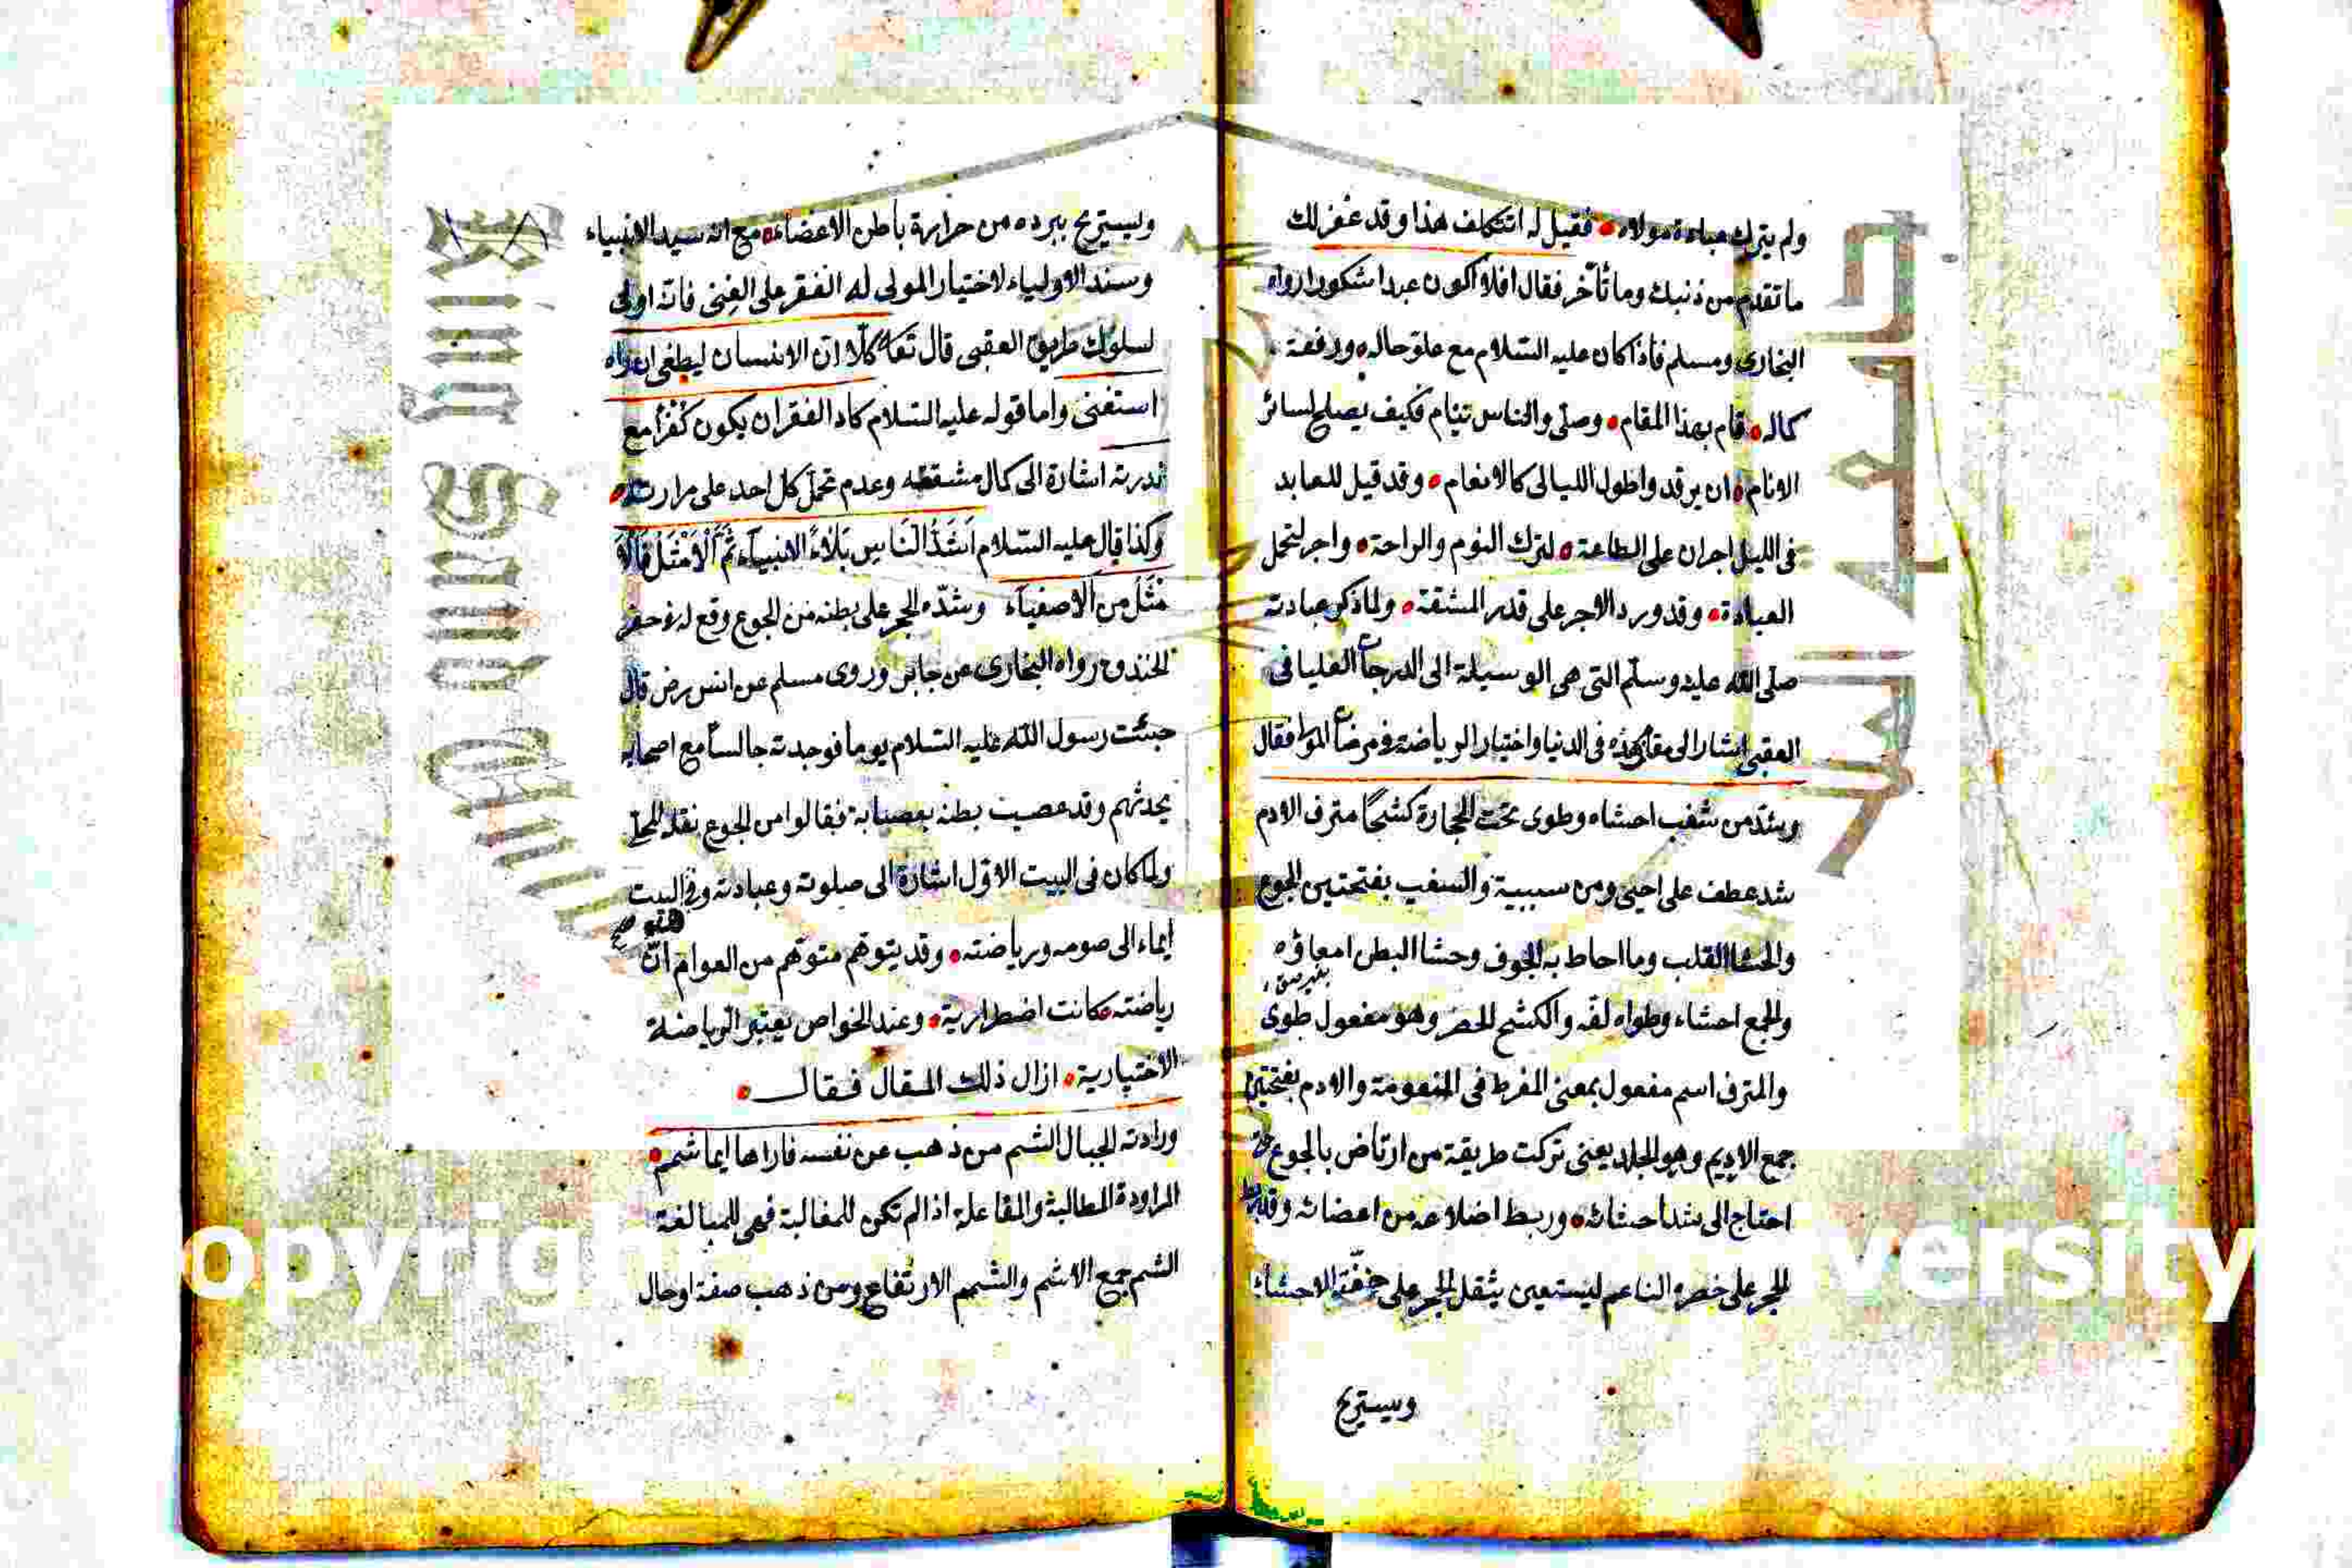 ولم يترك عبادة مولاه فقيل له اتتكلف هذا وقد غفر لك
ما تقدم من ذنبك وما تأخر فقال افلا اكون عبدا شكورا رواه
البخارى ومسلم فاذا كان عليه السلام مع علو حاله ورفعة
كماله قام بهذا المقام وصلى والناس نيام فكيف يصلح لسائر
الانام ان يرقد واطول الليالى كالانعام وقد قيل للعابد
فى الليل اجران على الطاعة لترك النوم والراحة واجر لتحمل
العبادة وقد ورد الاجر على قدر المشقة ولما ذكر عبادته
صلى الله عليه وسلم التى هى الوسيلة الى الدرجات العليا فى
العقبى اشار الى مقام زهده فى الدنيا واختيار الرياضة فى مرضات المولى فقال
وشد من سغب احشاه وطوى تحت الحجارة كشحًا مترف الادم
شد عطف على احيى ومن سببية والسغب بفتحتين الجوع
والحشا القلب وما احاط به الجوف وحشا البطن امعاؤه
والجمع احشاء وطواه لفه والكشح الخصر وهو مفعول طوى
والمترف اسم مفعول بمعنى المفرط فى النعومة والادم بفتحتين
جمع الاديم وهو الجلد يعنى تركت طريقة من ارتاض بالجوع حتى
احتاج الى شد احشائه وربط اضلاعه من اعضائه
الحجر على خصره الناعم ليستعين بثقل الحجر على خفة الاحشاء
ويستريح
ويستريح ببرده من حرارة باطن الاعضاء مع انه سيد الانبياء
وسند الاولياء لاختيار المولى له الفقر على الغنى فانه اولى
لسلوك طريق العقبى قال تعا كلا ان الانسان ليطغى ان راه
استغنى واما قوله عليه السلام كاد الفقر ان يكون كفرًا مع
ندرته اشارة الى كمال مشقته وعدم تحمل كل احد على مرارته
وكذا قال عليه السلام اشد الناس بلاء الانبياء ثم الامثل فالا
مثل من الاصفياء وشده الحجر على بطنه من الجوع وقع له فى حفر
الخندق رواه البخارى عن جابر وروى مسلم عن انس رض قال
جئت رسول الله عليه السلام يوما فوجدته جالسًا مع اصحابه
يحدثهم وقد عصب بطنه بعصابة فقالوا من الجوع نقله المحلى
ولما كان فى البيت الاول اشارة الى صلوته وعبادته وفى البيت
ايماء الى صومه ورياضته وقد يتوهم متوهم من العوام ان
رياضته كانت اضطرارية وعند الخواص يعتبر الرياضة
الاختيارية ازال ذلك المقال فقال
وراودته الجبال الشم من ذهب عن نفسه فاراها ايما شمم
المراودة المطالبة والمفاعلة اذا لم تكن للمغالبة فهى للمبالغة
الشم جمع الاشم والشمم الارتفاع ومن ذهب صفة او حال
جامعة الملك
King Saud
opyrigh
versity